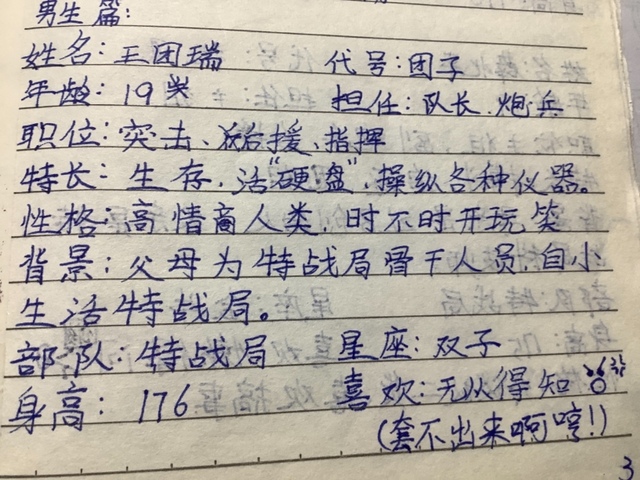 男生篇:
姓名:王团瑞 代号:团子
年龄:19岁 担任:队长.炮兵
职位:突击、后援、指挥
特长:生存,活"硬盘",操纵各种仪器。
性格:高情商人类,时不时开玩笑
背景:父母为特战局骨干人员,自小
生活特战局。
部队:特战局 星座:双子
身高:176 喜欢:无从得知
(套不出来啊哼!)
3